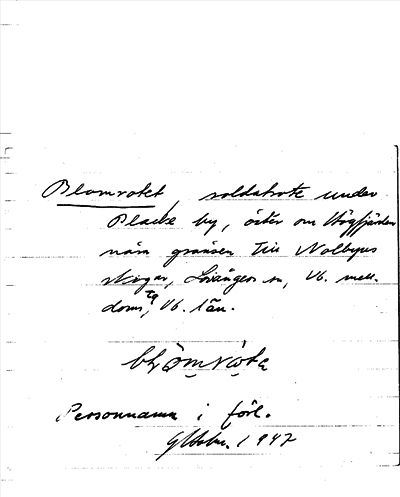 Blomrotet, soldatrote under
Placke by, öster om Högfjärden
nära gränsen till Nolbyns
skogar, Lövångers sn, Vb. mell.
doms tg, Vb. län.
Personnamn i förl.
1942